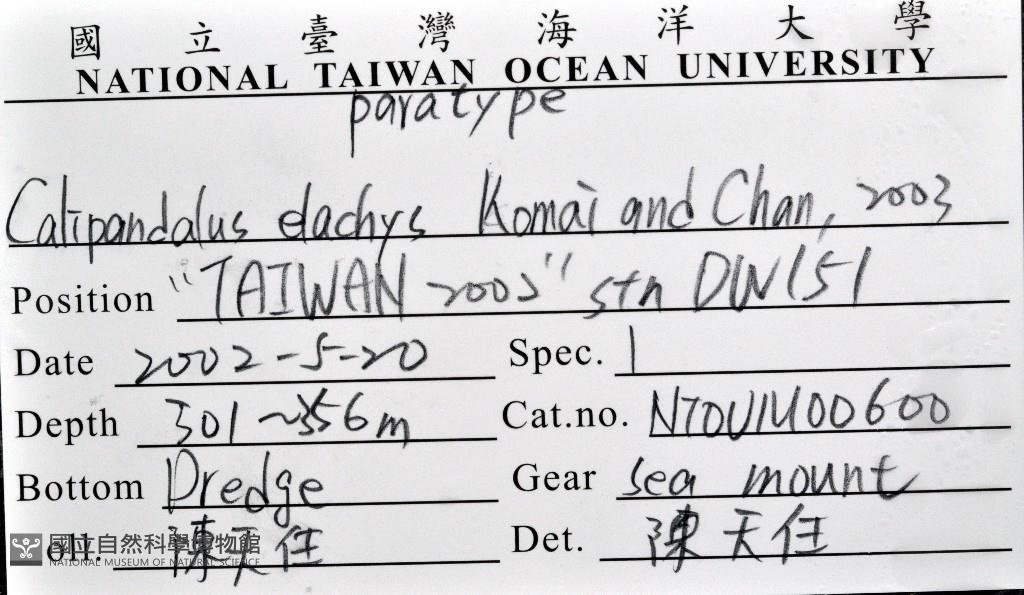 國立臺灣海洋大學
NATIONAL TAIWAN OCEAN UNIVERSITY
paratype
Calipandalus elachys Komai and Chan, 2003
Position "TAIWAN 2002" stn DW151
Date 2002-5-20 Spec. 1
Depth 301~356m Cat.no. NTOUM00600
Bottom Dredge Gear sea mount
Coll. 陳天任 Det. 陳天任
國立自然科學博物館
NATIONAL MUSEUM OF NATURAL SCIENCE